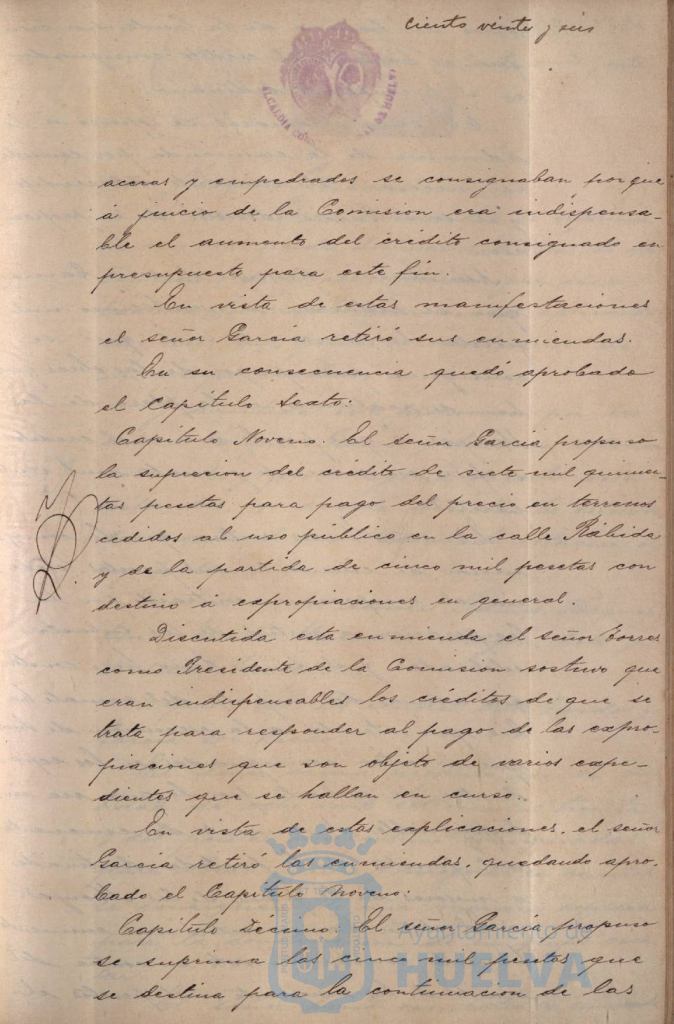 ciento veinte y seis
ALCALDIA CONS HUELVA
aceras y empedrados se consignaban porque
á juicio de la Comision era indispensa-
ble el aumento del crédito consignado en
presupuesto para este fin.
En vista de estas manifestaciones
el señor Garcia retiró sus enmiendas.
En su consecuencia quedó aprobado
el Capítulo Sexto:
Capítulo Noveno. El señor Garcia propuso
la supresion del crédito de siete mil quinien-
tas pesetas para pago del precio en terrenos
cedidos al uso público en la calle Rábida
y de la partida de cinco mil pesetas con
destino á expropiaciones en general.
Discutida esta enmienda el señor Torres
como Presidente de la Comision sostuvo que
eran indispensables los créditos de que se
trata para responder al pago de las expro-
piaciones que son objeto de varios expe-
dientes que se hallan en curso.
En vista de estas explicaciones, el señor
Garcia retiró las enmiendas, quedando apro-
bado el Capítulo Noveno:
Capítulo Décimo. El señor Garcia propuso
se suprima las cinco mil pesetas que
se destina para la continuacion de las
Ayuntamiento de
HUELVA